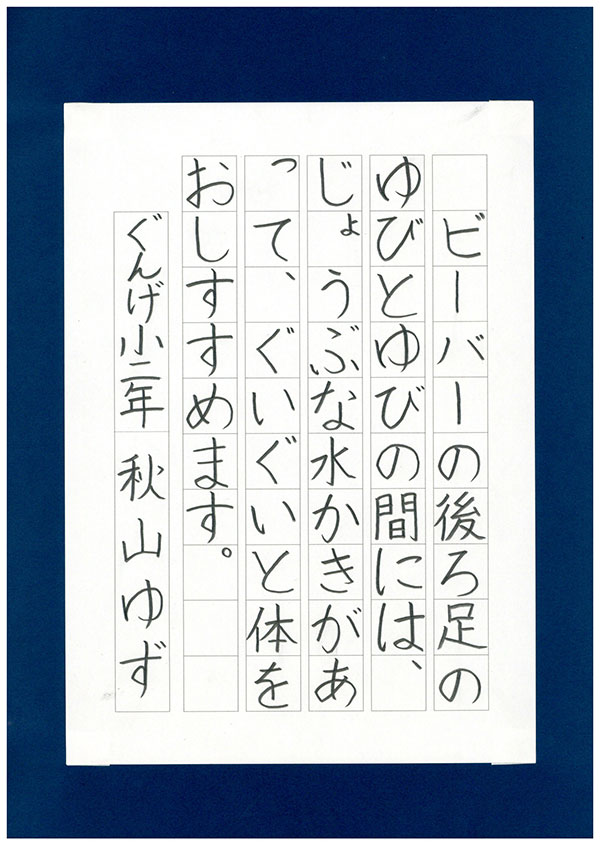 ビーバーの後ろ足の
ゆびとゆびの間には、
じょうぶな水かきがあ
って、ぐいぐいと体を
おしすすめます。
ぐんげ小二年 秋山ゆず